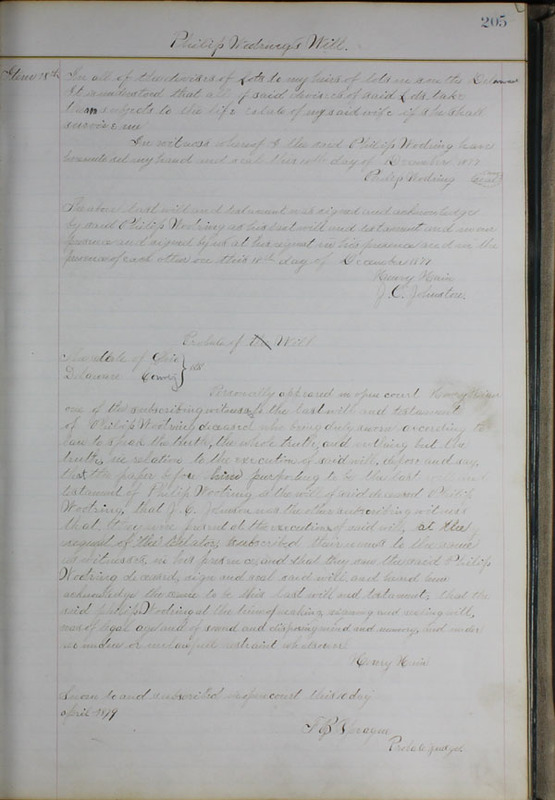 205
Philip Wootring's Will.
Item 18th In all of the devises of Lots to my heirs of lots in South Delaware
It is understood that all of said devises of said Lots take
them subjects to the life estate of my said wife if she shall
survive me
In witness whereof I the said Philip Wootring have
hereunto set my hand and seal this 10th day of December 1877
Philip Wootring Seal
The above last will and testament was signed and acknowledged
by said Philip Wootring as his last will and testament and in our
presence and signed by us at his request in his presence and in the
presence of each other on this 10th day of December 1877
Henry Main
J. C. Johnston,
Probate of the Will
The State of Ohio
Delaware County } ss
Personally appeared in open court Henry Main
one of the subscribing witness to the last will and testament
of Philip Wootring, deceased who being duly sworn according to
law to speak the truth, the whole truth, and nothing but the
truth, in relation to the execution of said will, depose and say,
that the paper before him purporting to be the last will and
testament of Philip Wootring is the will of said deceased Philip
Wootring, that J. C. Johnston was the other subscribing witness
that they were present at the execution of said will, at the
request of the testator, subscribed their names to the same
as witnesses, in his presence, and that they saw the said Philip
Wootring deceased, sign and seal said will, and heard him
acknowledge the same to be his last will and testament, that the
said Philip Wootring at the time of making, signing and sealing will,
was of legal age and of sound and disposing mind and memory, and under
no undue or unlawful restraint whatsoever
Henry Main
Sworn to and subscribed in open court this 10 day
april 1879
F B Sprague
Probate Judge